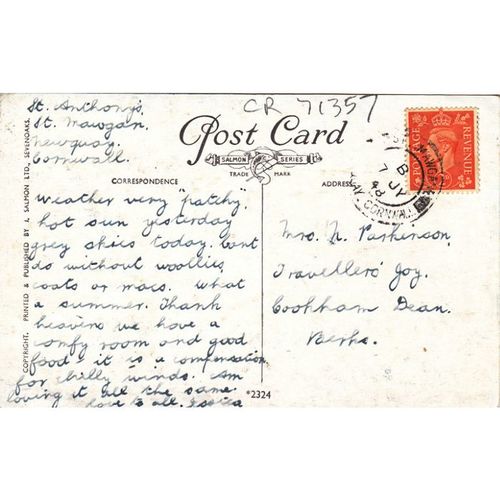 CR 71357
St. Anthony's
St. Mawgan
Newquay
Cornwall
Post Card
SALMON SERIES
TRADE MARK
CORRESPONDENCE
ADDRESS
COPYRIGHT. PRINTED & PUBLISHED BY J. SALMON LTD. SEVENOAKS.
Weather very "patchy"
hot sun yesterday
grey skies today. Cant
do without woollies,
coats or macs. What
a summer. Thank
heavens we have a
comfy room and good
food - it is a compensation
for chilly winds. Am
loving it all the same.
love to all. Jessica
*2324
Mrs. N. Parkinson,
Travellers' Joy,
Cookham Dean,
Berks.
POSTAGE REVENUE
MAWGAN
B
7 JY
48
CORNWALL